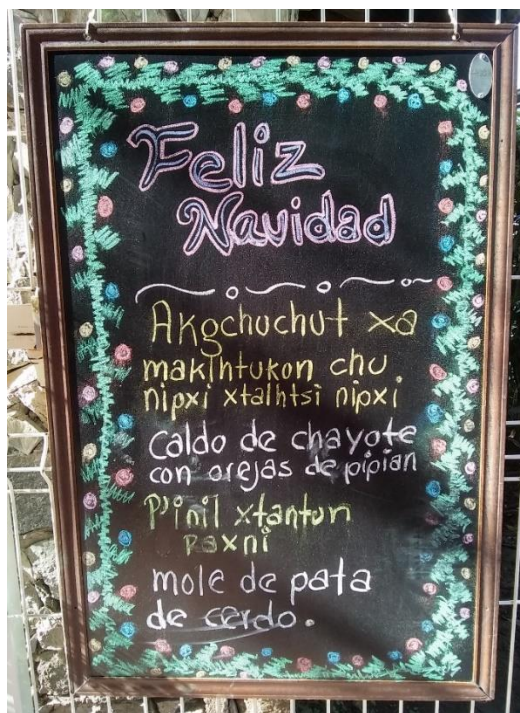 Feliz
Navidad
Akgchuchut xa
maklhtukon chu
nipxi xtalhtsi nipxi
caldo de chayote
con orejas de pipian
P'inil xtantun
paxni
mole de pata
de cerdo.